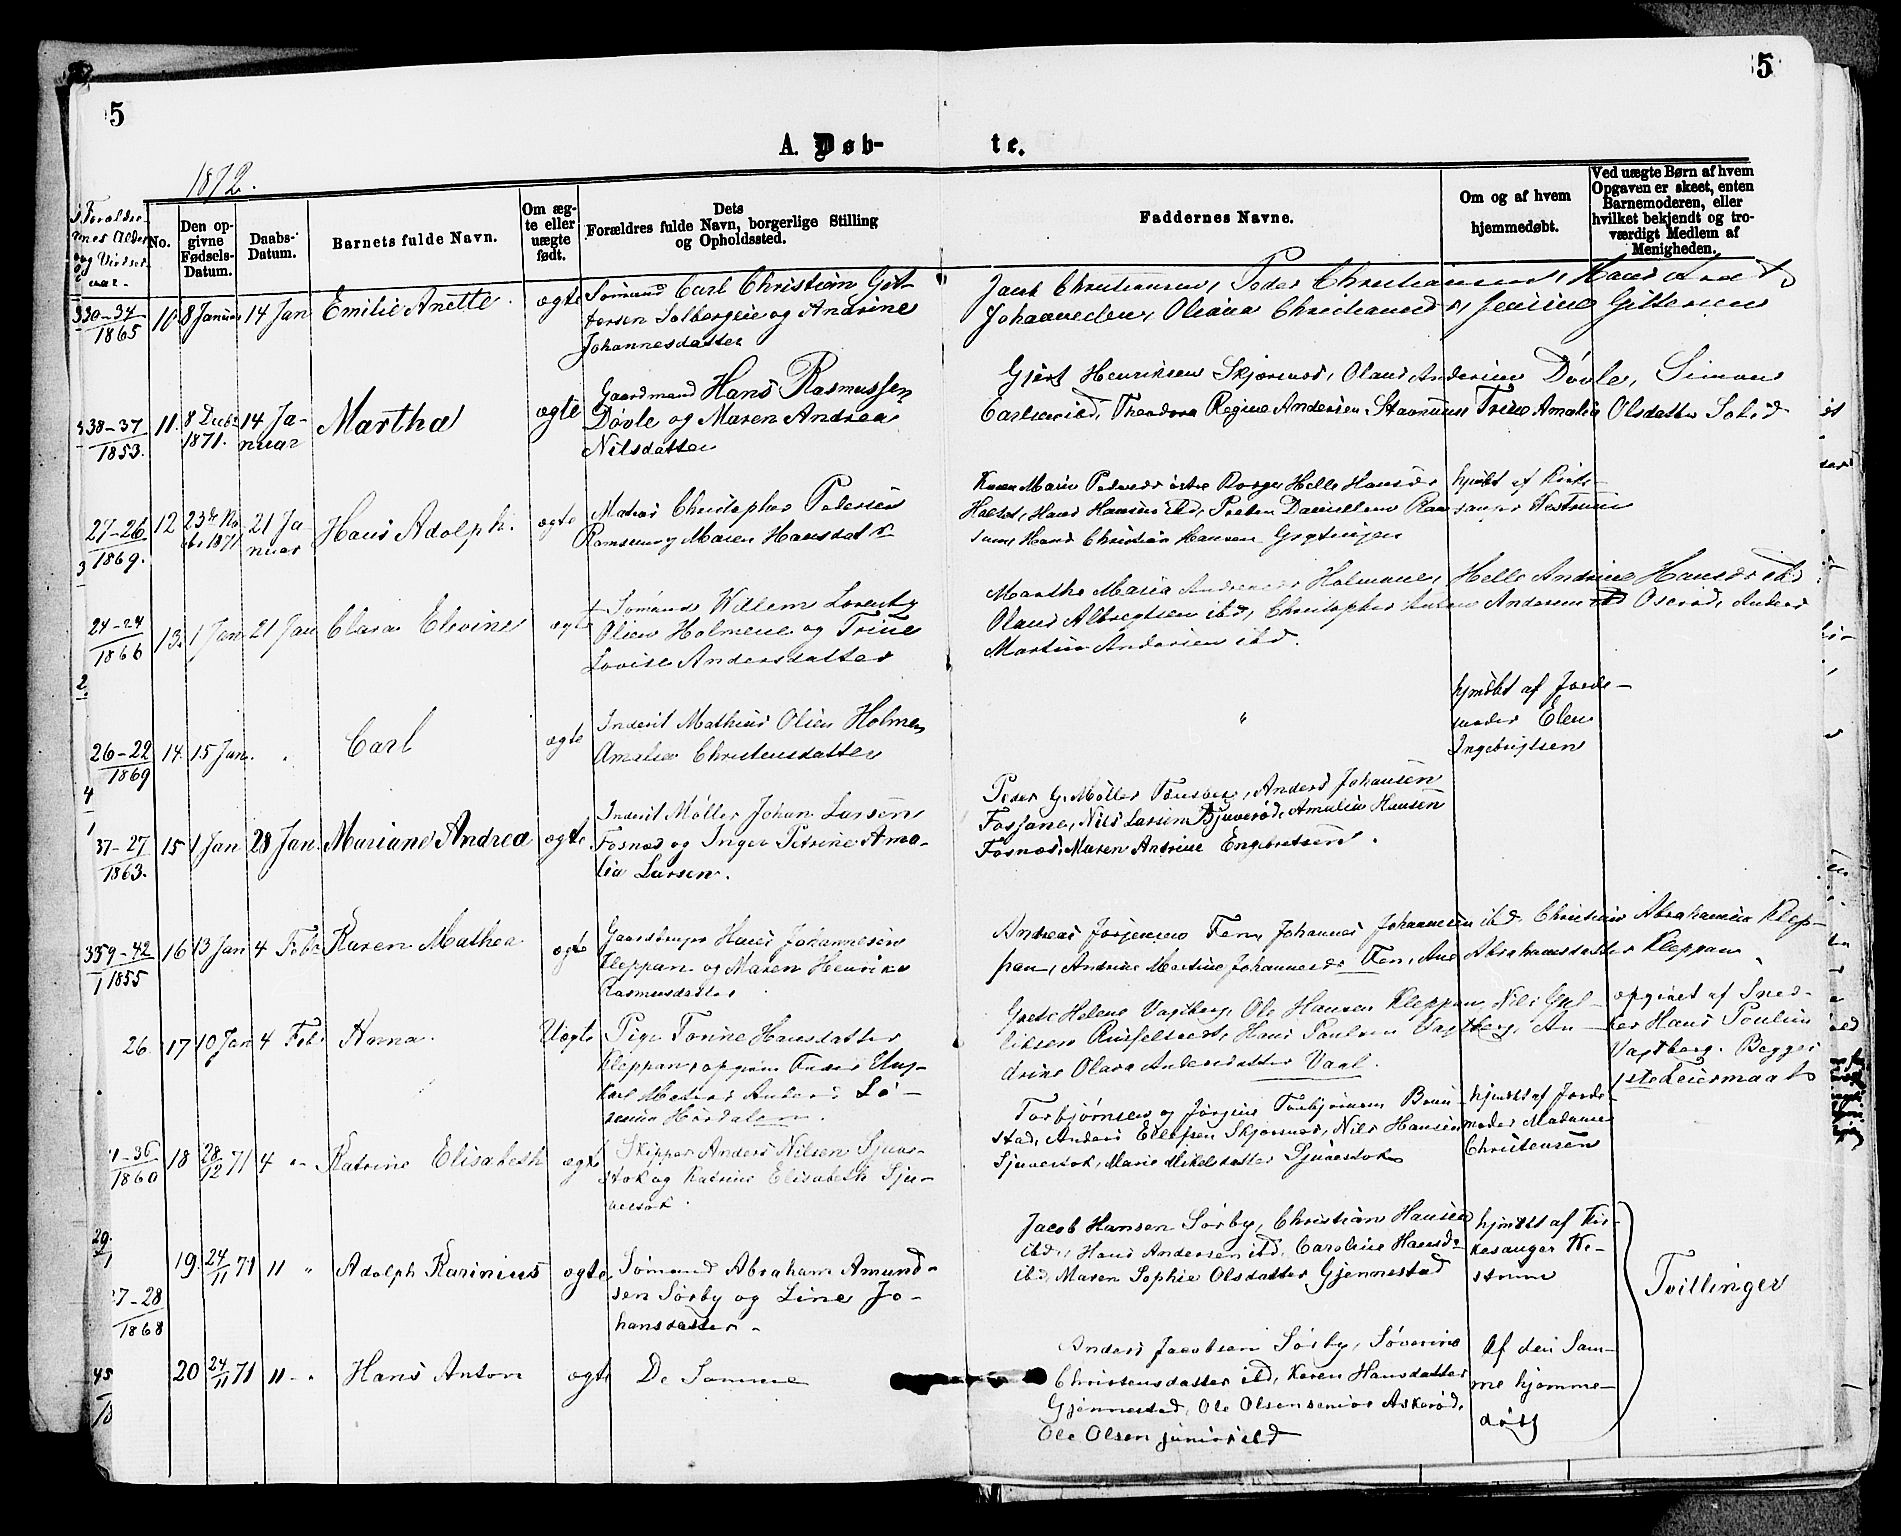 5
5
A. Døb-
te.
1872.
Forældre-
nes Alder
og Vielses-
aar.
No.
Den op-
givne
Fødsels-
Datum.
Daabs-
Datum.
Barnets fulde Navn.
Om æg-
te eller
uægte
født.
Dets
Forældres fulde Navn, borgerlige Stilling
og Opholdssted.
Faddernes Navne.
Om og af hvem
hjemmedøbt.
Ved uægte Børn af hvem
Opgaven er skeet, enten
Barnemoderen, eller
hvilket bekjendt og tro-
værdigt Medlem af
Menigheden.
30-34
1865
10
8 Januar
14 Jan
Emilie Anette
ægte
Sømand Carl Christian Git-
tersen Solbergeie og Andrine
Johannesdatter
Jacob Christiansen, Peder Christiansen, Hans
Johannesen, Oliana Christiansd., Jensine Gittersen
38-37
1853.
11.
8 Decbr
1871.
14 Ja-
nuar
Martha
ægte
Gaardmand Hans Rasmussen
Døvle og Maren Andrea
Nilsdatter
Gjert Henriksen Skjærsnes, Olaus Andersen Døvle, Simon
Carlsen ibd, Theodora Regine Andersen Stavnum Trine Amalia Olsdatter
27-26
1869.
12
23de No
vbr 1871
21 Ja-
nuar
Hans Adolph.
ægte
Matros Christopher Pedersen
Ramsum og Maren Hansdatr
Karen Marie Pedersdr østre Borge, Helle Hansdr
Holset, Hans Hansen ibd, Preben Danielsen Ram
sum, Hans Christian Hansen Grytingen
hjmdbt af Kirke-
sanger Vestrum
24-24
1866
13.
1 Jan
21 Jan
Clara Elevine
ægte
Sømand Willem Lorentz
Olsen Holmene og Trine
Lovise Andersdatter
Marthe Maria Andreasdr Holmene, Helle Andrine Hansdr ibd
Olaus Albregtsen ibd, Christopher Anton Andersen Oserød, Anders
Martin Andersen ibd.
26-22
1869
14.
15 Jan.
"
Carl
ægte
Inderst Mathias Olsen Holmen
Amalie Christensdatter
"
hjmdbt af Jorde-
moder Elen
Ingebrigtsen
37-27
1863.
15
1 Jan
28 Jan.
Mariane Andrea
ægte.
Inderst Møller Johan Larsen
Fosnæs og Inger Petrine Ama-
lia Larsen.
Peder G. Møller Tønsberg, Anders Johansen
Fossane, Nils Larsen Bjuerød, Amalia Hansen
Fosnæs, Maren Andrine Engebretsen.
59-42
1855
16
13 Jan
4 Febr
Karen Mathea
ægte
Gaardbruger Hans Johannesen
Kleppan og Maren Henrikke
Rasmusdatter
Andreas Jørgensen Fen, Johannes Johannesen ibd. Christian Abrahamsen Klep-
pan, Andrine Martine Johannesdr Fen, Ane Abrahamsdatter Kleppan.
26
17
10 Jan
4 Febr
Anna.
Uægte
Pige Tonine Hansdatter
Kleppan, opgiven Fader Ung-
karl Matros Anders Sø-
rensen Hasdalen
Grete Helene Vagtberg, Ole Hansen Kleppan, Nils Gul-
liksen Rusfelteret, Hans Paulsen Vagtberg, An-
drine Olava Andersdatter Vaal.
opgivet af Sned-
ker Hans Poulsen
Vagtberg. Begges
1ste Leiermaal
-36
1860
18
28/12 71
4 "
Katrine Elisabeth
ægte
Skipper Anders Nilsen Sjuve-
stok og Katrine Elisabeth Sju-
vestok.
Torbjørnsen og Jørgine Torbjørnsen Brun-
stad, Anders Ellefsen Skjærsnes, Nils Hansen
Sjuvestok, Marie Mikelsdatter Sjuvestok
hjmdbt af Jorde-
moder Madame
Christensen
27-28
1868
19.
24/11 71
11 "
Adolph Karinius
ægte
Sømand Abraham Amund-
sen Sørby og Line Jo-
hansdatter.
Jacob Hansen Sørby, Christian Hansen
ibd, Hans Andersen ibd, Caroline Hansdr
ibd, Maren Sophie Olsdatter Gjennestad
hjmdbt af Kir-
kesanger Ve-
strum
Tvillinger
20
24/11 71
11 - "
Hans Anton
ægte
De Samme
Anders Jacobsen Sørby, Søverine
Christensdatter ibd, Karen Hansdatter
Gjennestad, Ole Olsen senior Askerød,
Ole Olsen junior ibd
Af den Sam-
me hjemme-
døbt